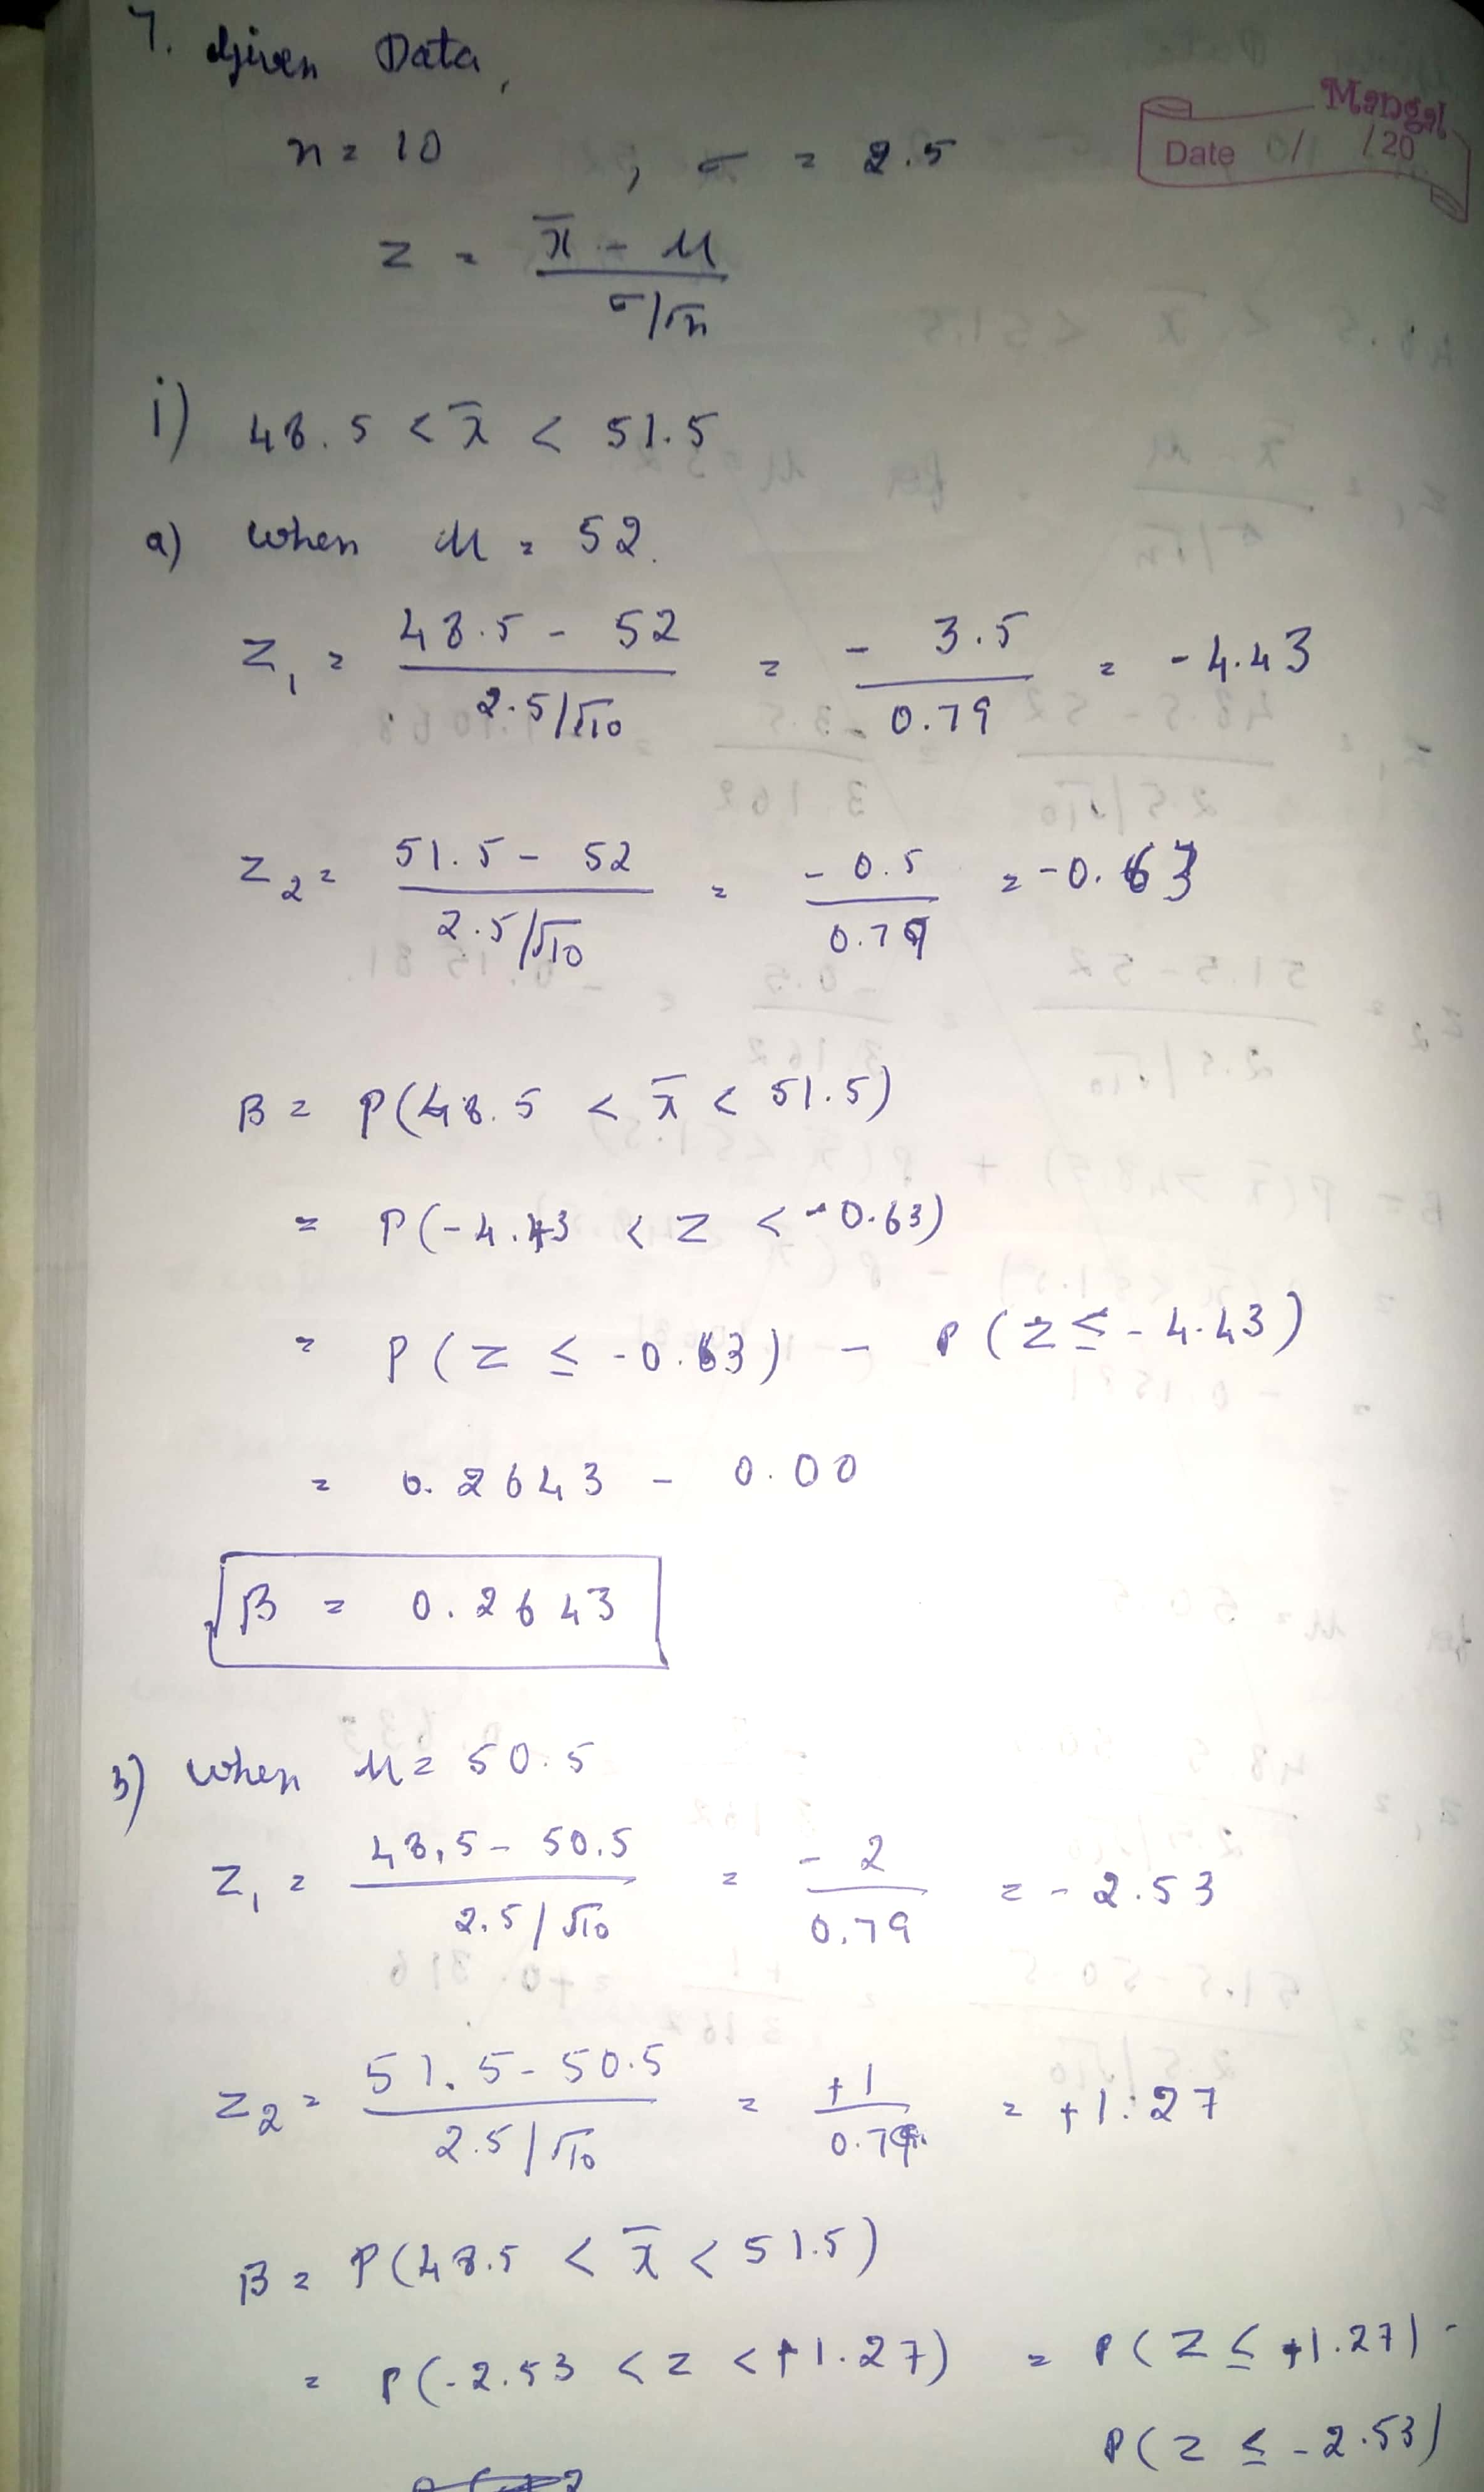 7. Given Data,
Mangal
Date / /20
n = 10 , σ = 2.5
z = x̄ - μ / σ/√n
i) 48.5 < x̄ < 51.5
a) when μ = 52.
Z₁ = 48.5 - 52 / 2.5/√10 = - 3.5 / 0.79 = -4.43
Z₂ = 51.5 - 52 / 2.5/√10 = - 0.5 / 0.79 = -0.63
β = P(48.5 < x̄ < 51.5)
= P(-4.43 < Z < -0.63)
= P(Z ≤ -0.63) - P(Z ≤ -4.43)
= 0.2643 - 0.00
β = 0.2643
b) when μ = 50.5
Z₁ = 48.5 - 50.5 / 2.5/√10 = - 2 / 0.79 = - 2.53
Z₂ = 51.5 - 50.5 / 2.5/√10 = +1 / 0.79 = +1.27
β = P(48.5 < x̄ < 51.5)
= P(-2.53 < Z < +1.27) = P(Z ≤ +1.27) -
P(Z ≤ -2.53)